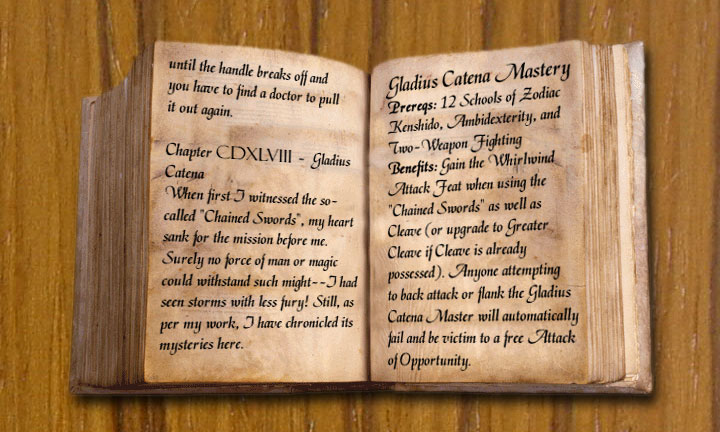 until the handle breaks off and
you have to find a doctor to pull
it out again.
Chapter CDXLVIII - Gladius
Catena
When first I witnessed the so-
called "Chained Swords", my heart
sank for the mission before me.
Surely no force of man or magic
could withstand such might--I had
seen storms with less fury! Still, as
per my work, I have chronicled its
mysteries here.
Gladius Catena Mastery
Prereqs: 12 Schools of Zodiac
Kenshido, Ambidexterity, and
Two-Weapon Fighting
Benefits: Gain the Whirlwind
Attack Feat when using the
"Chained Swords" as well as
Cleave (or upgrade to Greater
Cleave if Cleave is already
possessed). Anyone attempting
to back attack or flank the Gladius
Catena Master will automatically
fail and be victim to a free Attack
of Opportunity.